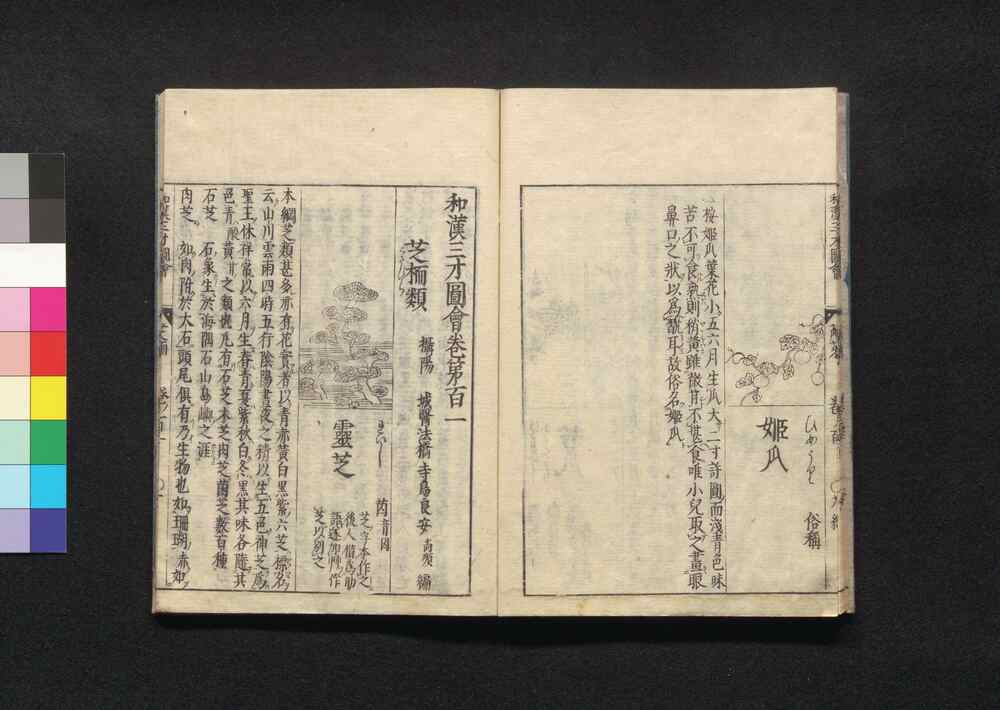 ひめうり
俗稱
姬瓜
△按姬瓜葉花小五六月生瓜大二寸許圓而淺青色味
苦不可食熟則稍黃雖微甘不甚食唯小兒取之畫眼
鼻口之狀以爲翫耳故俗名姬瓜
和漢三才圖會
和漢三才圖會卷第百一
攝陽 城醫法橋寺島良安尚順 編
芝栭類
靈芝
茵音因
芝字本作之
後人借爲助
語遂加艸作
芝以別之
本綱芝類甚多亦有花實者以青赤黃白黑紫六芝標名
云山川雲雨四時五行陰陽晝夜之精以生五色神芝爲
聖王休祥常以六月生春青夏紫秋白冬黑其味各隨其
色青酸黃甘之類也凡有石芝木芝肉芝菌芝數百種
石芝 石象生於海隅石山島嶼之涯
肉芝 如肉附於大石頭尾俱有乃生物也如珊瑚赤如
和漢三才圖會